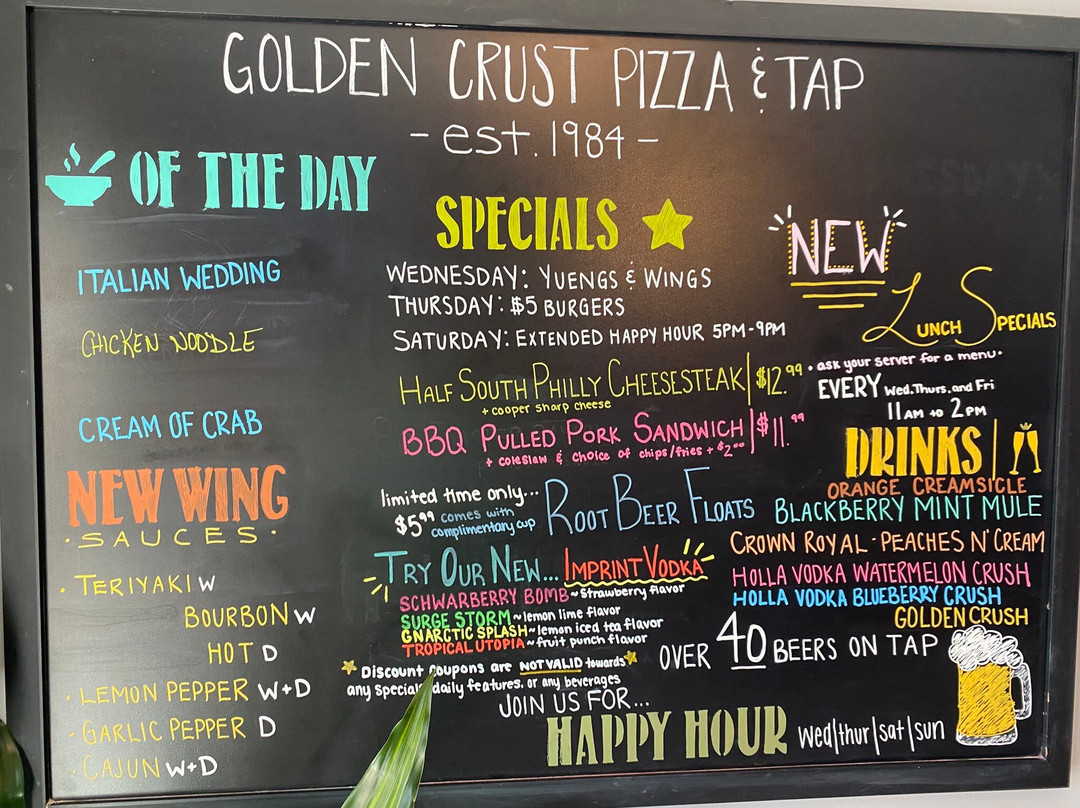 GOLDEN CRUST PIZZA & TAP
- est. 1984 -
OF THE DAY
ITALIAN WEDDING
CHICKEN NOODLE
CREAM OF CRAB
NEW WING
· SAUCES ·
· TERIYAKI W
BOURBON W
HOT D
· LEMON PEPPER W+D
· GARLIC PEPPER D
· CAJUN W+D
SPECIALS
WEDNESDAY: YUENGS & WINGS
THURSDAY: $5 BURGERS
SATURDAY: EXTENDED HAPPY HOUR 5PM-9PM
HALF SOUTH PHILLY CHEESESTEAK | $12.99
+ cooper sharp cheese
BBQ PULLED PORK SANDWICH | $11.99
+ coleslaw & choice of chips/fries + $2.00
limited time only...
$5.99 comes with
complimentary cup
ROOT BEER FLOATS
TRY OUR NEW... IMPRINT VODKA
SCHWARBERRY BOMB ~ Strawberry flavor
SURGE STORM ~ lemon lime flavor
GNARCTIC SPLASH ~ lemon iced tea flavor
TROPICAL UTOPIA ~ fruit punch flavor
Discount coupons are NOT VALID towards
any Special daily features, or any beverages
JOIN US FOR...
HAPPY HOUR wed|thur|sat|sun
NEW
LUNCH SPECIALS
· ask your server for a menu ·
EVERY Wed. Thurs. and Fri
11 AM to 2 PM
DRINKS
ORANGE CREAMSICLE
BLACKBERRY MINT MULE
CROWN ROYAL - PEACHES N' CREAM
HOLLA VODKA WATERMELON CRUSH
HOLLA VODKA BLUEBERRY CRUSH
GOLDEN CRUSH
OVER 40 BEERS ON TAP